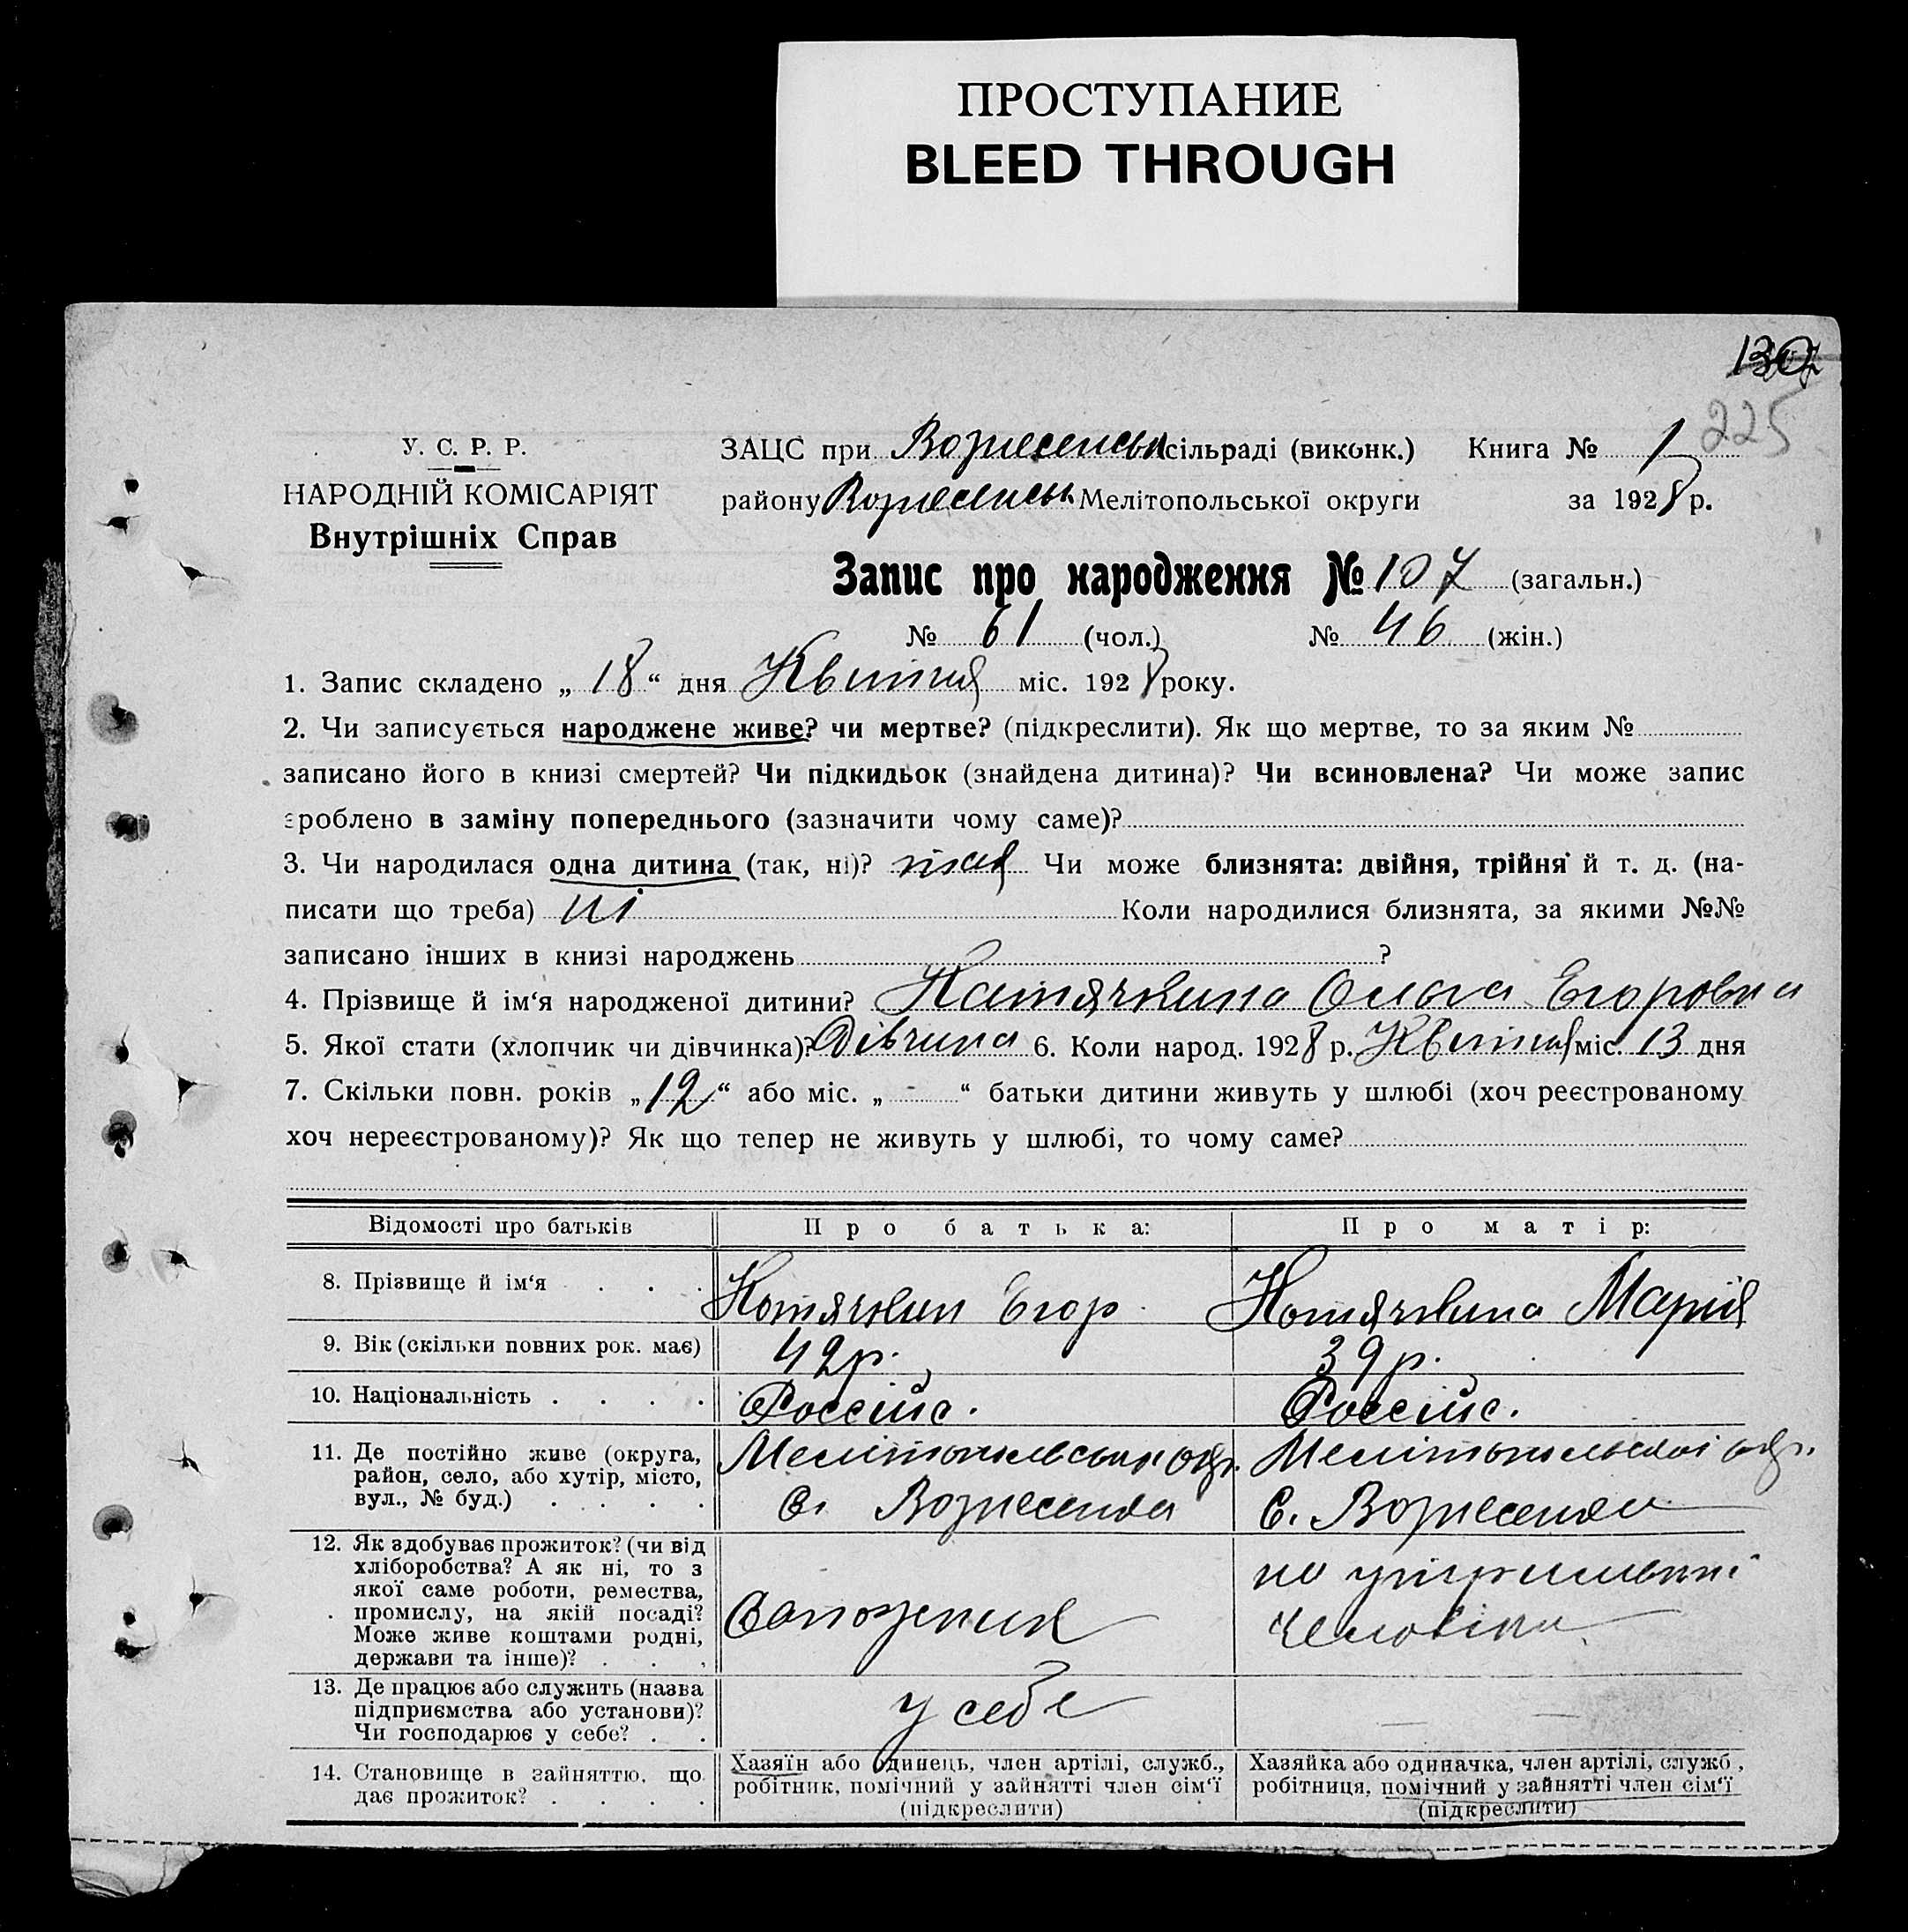 ПРОСТУПАНИЕ
BLEED THROUGH
130
225
У. С. Р. Р.
НАРОДНІЙ КОМІСАРІЯТ
Внутрішніх Справ
ЗАЦС при Вознесенськ сільраді (виконк.) Книга № 1
району Вознесенськ Мелітопольської округи за 1928 р.
Запис про народження № 107 (загальн.)
№ 61 (чол.) № 46 (жін.)
1. Запис складено „ 18 “ дня Квітня міс. 1928 року.
2. Чи записується народжене живе? чи мертве? (підкреслити). Як що мертве, то за яким №
записано його в книзі смертей? Чи підкидьок (знайдена дитина)? Чи всиновлена? Чи може запис
зроблено в заміну попереднього (зазначити чому саме)?
3. Чи народилася одна дитина (так, ні)? так Чи може близнята: двійня, трійня й т. д. (на-
писати що треба) ні Коли народилися близнята, за якими №№
записано інших в книзі народжень ?
4. Прізвище й ім‘я народженої дитини? Котячкина Ольга Егоровна
5. Якої стати (хлопчик чи дівчинка)? Дівчина 6. Коли народ. 1928 р. Квітня міс. 13 дня
7. Скільки повн. років „ 12 “ або міс. „ “ батьки дитини живуть у шлюбі (хоч реєстрованому
хоч нереєстрованому)? Як що тепер не живуть у шлюбі, то чому саме?
Відомості про батьків Про батька: Про матір:
8. Прізвище й ім‘я Котячкин Егор Котячкина Марія
9. Вік (скільки повних рок. має) 42 р. 39 р.
10. Національність Россійс. Россійс.
11. Де постійно живе (округа,
район, село, або хутір, місто,
вул., № буд.)
Мелітопольська окр.
с. Вознесенка
Мелітопольскоі окр.
с. Вознесенка
12. Як здобуває прожиток? (чи від
хліборобства? А як ні, то з
якої саме роботи, ремества,
промислу, на якій посаді?
Може живе коштами родні,
держави та інше)?
Сапожник
на утрим
человіка
13. Де працює або служить (назва
підприємства або установи)?
Чи господарює у себе?
у себе
14. Становище в зайняттю, що
дає прожиток?
Хазяїн або одинець, член артілі, служб.,
робітник, помічний у зайнятті член сім‘ї
(підкреслити)
Хазяйка або одиначка, член артілі, служб,
робітниця, помічний у зайнятті член сім‘ї
(підкреслити)